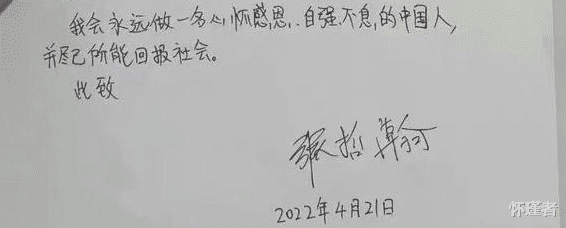 我会永远做一名心怀感恩、自强不息的中国人,
并尽己所能回报社会。
此致
张哲瀚
2022年4月21日
怀瑾者